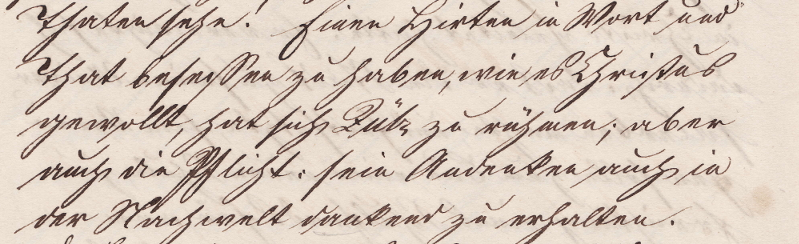 Thaten sehe! Einen Hirten in Wort und
That besessen zu haben, wie es Christus
gewollt, hat sich zu rühmen; aber
auch die Pflicht: sein Andenken auch in
der Nachwelt dankend zu erhalten.